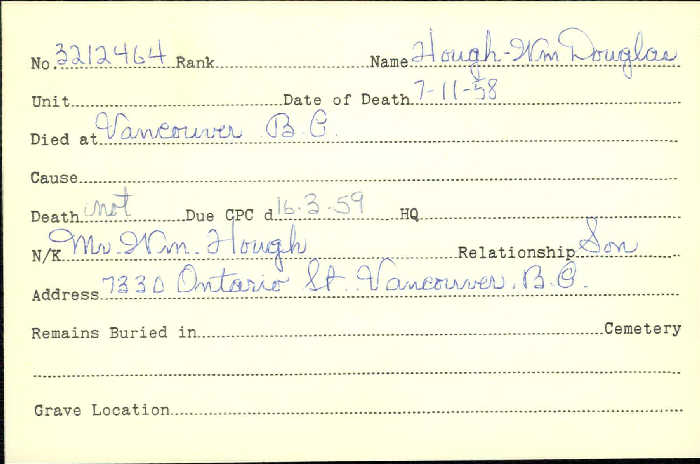 No. 3212464 Rank Name Hough-Wm Douglas
Unit Date of Death 7-11-58
Died at Vancouver B.C.
Cause
Death not Due CPC d 16-3-59 HQ
N/K Mr. Wm. Hough Relationship Son
Address 7330 Ontario St. Vancouver. B.C.
Remains Buried in Cemetery
Grave Location